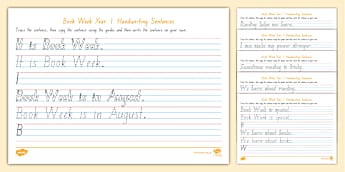 Book Week Year 1 Handwriting Sentences
Trace the sentence, then copy the sentence using the guide, and then write the sentence on your own.
It is Book Week.
It is Book Week.
I
Book Week is in August.
Book Week is in August.
B
Book Week Year 1 Handwriting Sentences
Reading helps me learn.
Book Week Year 1 Handwriting Sentences
Book Week Year 1 Handwriting Sentences
Book Week Year 1 Handwriting Sentences
We learn about
Book Week Year 1 Handwriting Sentences
Book Week is special.
Book Week is special.
B
We learn about books.
We learn about books.
W